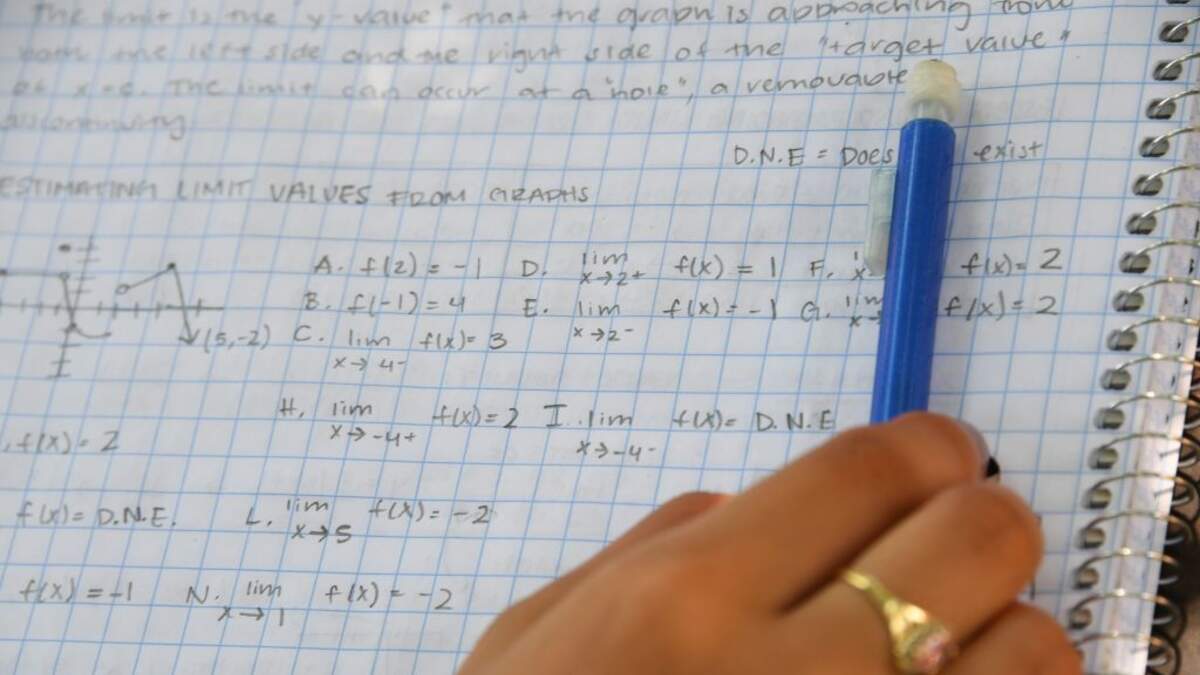 The limit is the "y-value" that the graph is approaching from
both the left side and the right side of the "target value"
of x=c. The limit can occur at a "hole", a removable
discontinuity
D.N.E = Does exist
ESTIMATING LIMIT VALUES FROM GRAPHS
A. f(2) = -1 D. lim x→2+ f(x) = 1 F. f(x)= 2
B. f(-1) = 4 E. lim x→2- f(x) = -1 G. lim f(x) = 2
(5,-2) C. lim x→4- f(x)= 3
H. lim x→-4+ f(x) = 2 I. lim x→-4- f(x)= D.N.E
f(x) = 2
f(x) = D.N.E. L. lim x→5 f(x) = -2
f(x) = -1 N. lim x→1 f(x) = -2